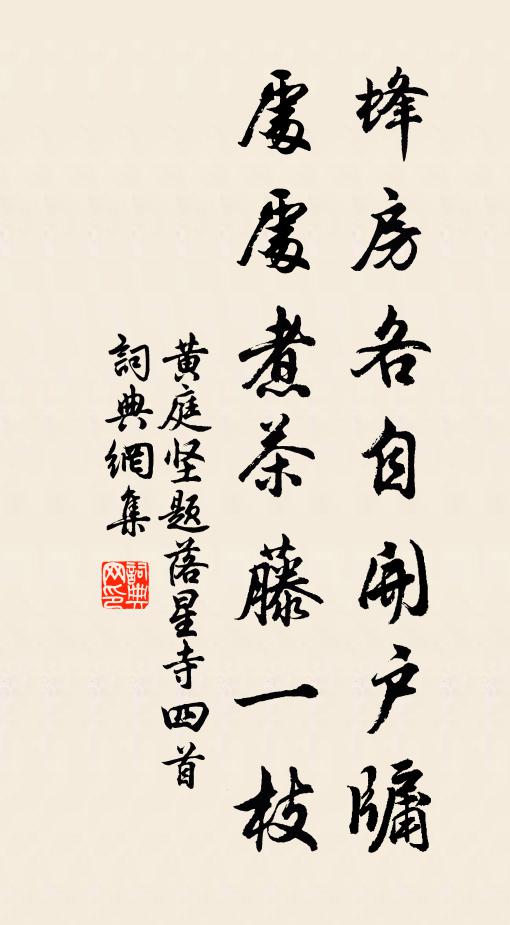 蜂房各自開户牖
處處煮茶藤一枝
黄庭坚题落星寺四首
詞典網集
詞典网印